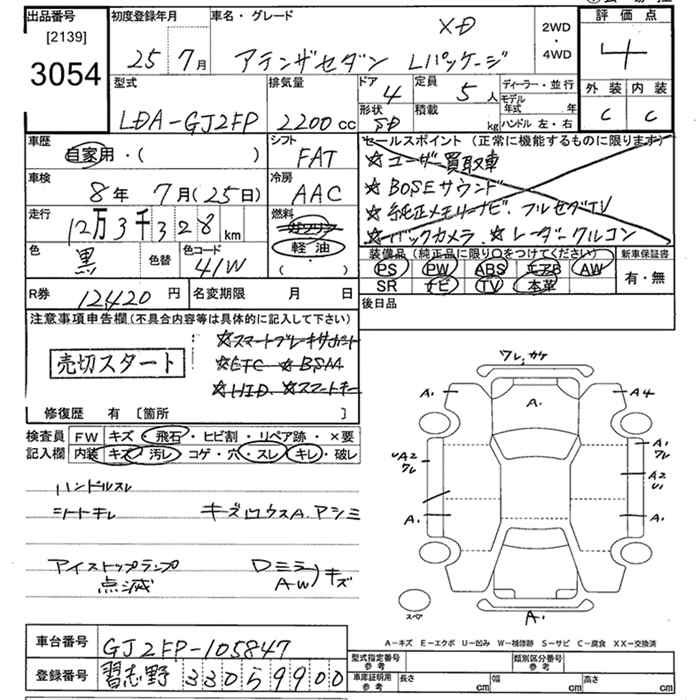 出品番号 初度登録年月 車名・グレード XD 2WD・4WD 評価点
[2139]
3054
25年 7月 アテンザセダン Lパッケージ 4
型式 排気量 ドア 4 定員 5人 ディーラー・並行 外装 内装
LDA-GJ2FP 2200cc 形状 SD 積載 kg モデル年式 年 C C
ハンドル 左・右
車歴 自家用・( ) シフト FAT セールスポイント(正常に機能するものに限ります)
☆ユーザー買取車
車検 8年 7月(25日) 冷房 AAC ☆BOSEサウンド
☆純正メモリーナビ・フルセグTV
走行 12万3千328km 燃料 ガソリン ☆バックカメラ ☆レーダークルコン
軽油
・( )
色 黒 色替 色コード 41W 装備品(純正品に限り○をつけてください) 新車保証書
PS PW ABS エアB AW 有・無
R券 12420円 名変期限 月 日 SR ナビ TV 本革
後日品
注意事項申告欄(不具合内容等は具体的に記入して下さい)
売切スタート ☆スマートブレーキサポート
☆ETC ☆BSM
☆HID ☆スマートキー
修復歴 有 [箇所 ]
検査員 FW キズ・飛石・ヒビ割・リペア跡・×要
記入欄 内装 キズ・汚レ・コゲ・穴・スレ・キレ・破レ
ハンドルスレ
シートキレ キズ ウスA アシミ
アイストップランプ Dミラ
点滅 AW)キズ
ワレ カケ
A1 A1 A4
UA2 ワレ A1 ワレ
A2 U1
A1 A1
スペア A1
A-キズ E-エクボ U-凹み W-補修跡 S-サビ C-腐食 XX-交換済
車台番号 GJ2FP-105847
型式指定番号 参考 類別区分番号 参考
登録番号 習志野 330 59900
車庫証明用 参考 長さ cm 幅 cm 高さ cm